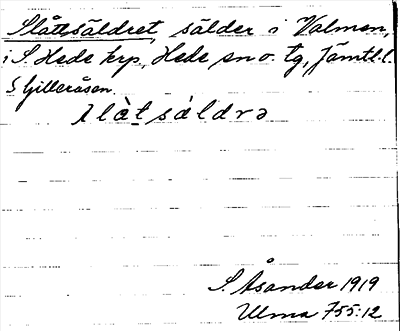 Slåttsäldret, sälder i Valmen,
i S. Hede krp, Hede sn o. tg, Jämtl. l.
S Gilleråsen.
slàtsäldrə
S. Åsander 1919
Ulma 755:12